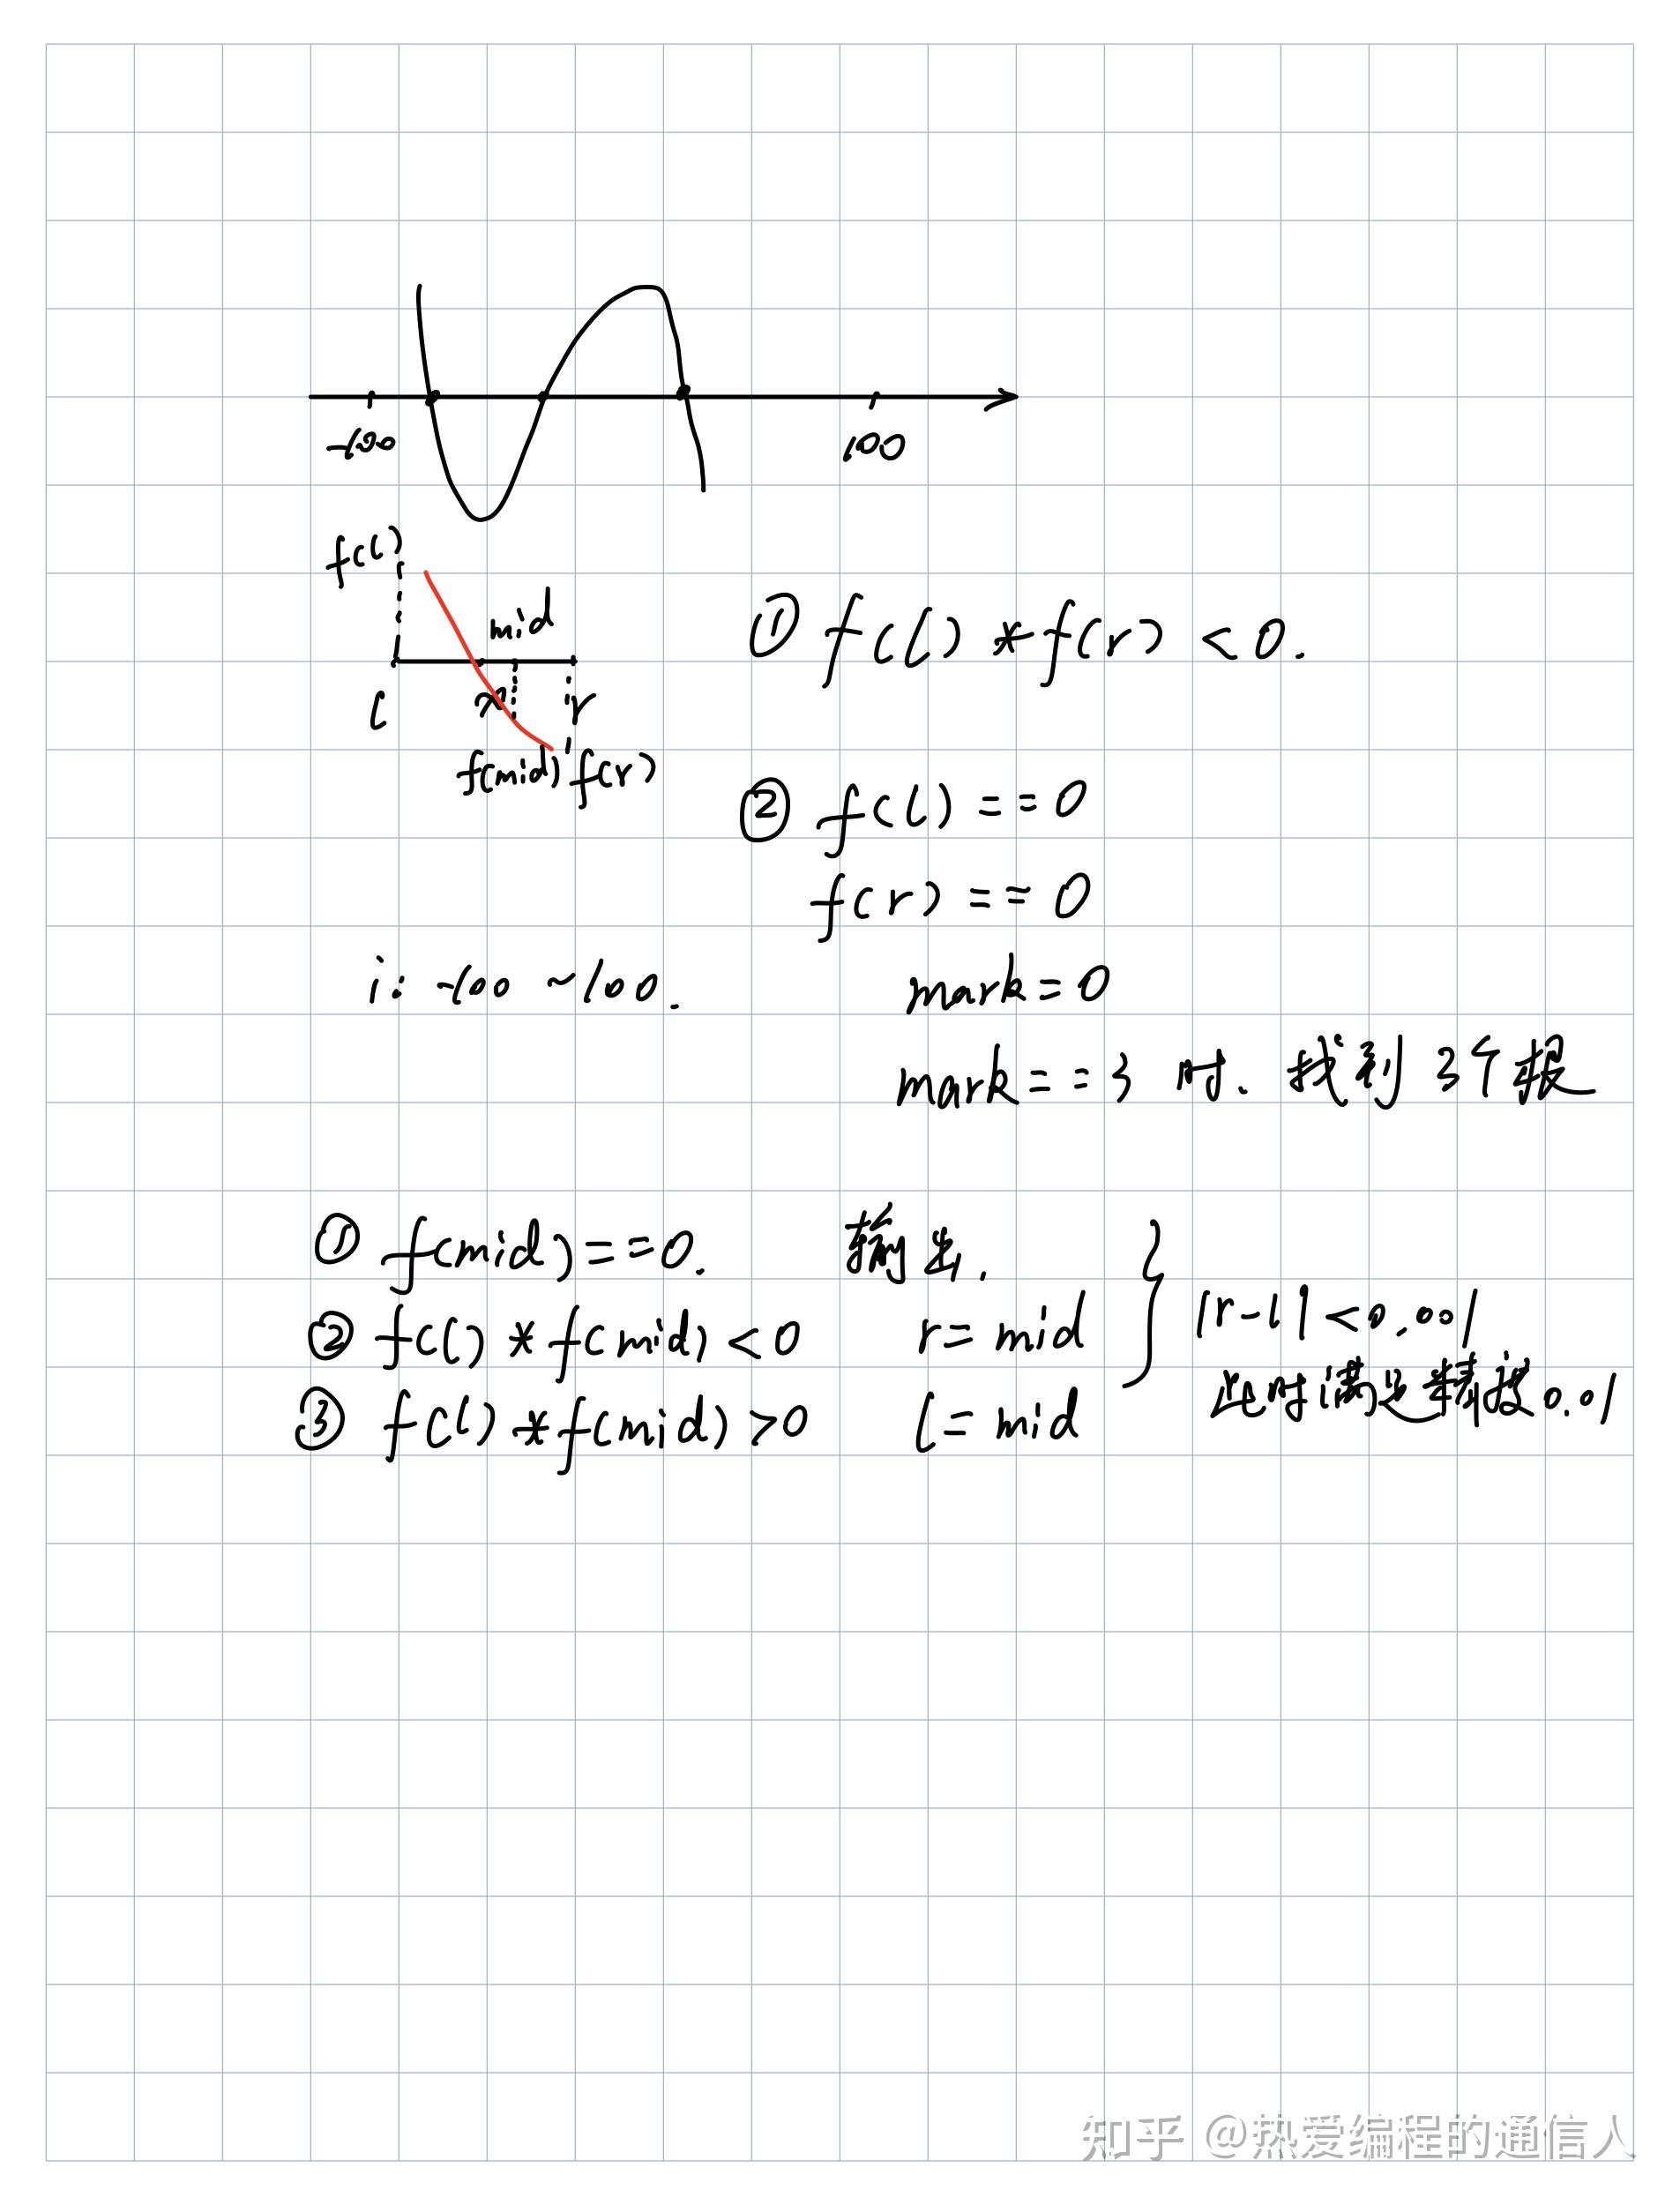 -100
100
f(l)
mid
l x r
f(mid) f(r)
① f(l) * f(r) < 0.
② f(l) == 0
f(r) == 0
i: -100 ~ 100.
mark = 0
mark == 3 时. 找到 3个根
① f(mid) == 0. 输出.
② f(l) * f(mid) < 0 r = mid
③ f(l) * f(mid) > 0 l = mid
|r-l| < 0.001
此时满足精度0.01
知乎 @热爱编程的通信人